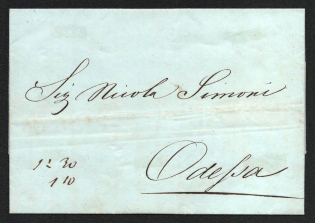 Sig Nicola Simoni
12 30
1 10
Odessa